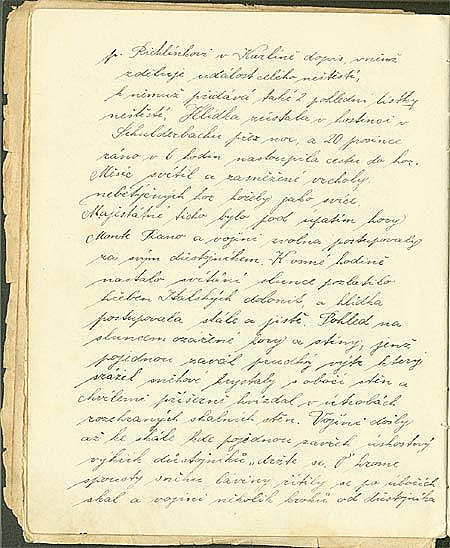 p. Richlínkovi v Karlíně dopis, v němž
zděluje událost celého neštěstí,
k němuž předává také 2 pohlední lístky
neštěstí, Hlídka zůstala v hostinci v
Schulderbachu přes noc, a 20 prosince
ráno v 6 hodin nastoupila cestu do hor.
Měsíc svítil a zasněžené vrcholy
nebetyčných hor hořely jako svíce.
Majestátné ticho bylo pod úpatím hory
Monte Piano a vojíni zvolna postupovaly
za svým důstojníkem. K osmé hodině
nastalo svítání slunce pozlatilo
hřeben Italských dolomit, a hlídka
postupovala stále a jistě. Pohled na
sluncem ozářené hory a stěny, jenž
pojednou zavál prudký vítr který
srážel sněhové krystaly s obočí stěn a
chvílemi příšerně hvízdal v útrobách
rozehraných skalních stěn. Vojíni došly
až ke skále kde pojednou zavzněl úzkostný
výkřik důstojníků, držte se. O hrome
spousty sněhu laviny řítily se po úbočích
skal a vojíni několik kroků od důstojníka